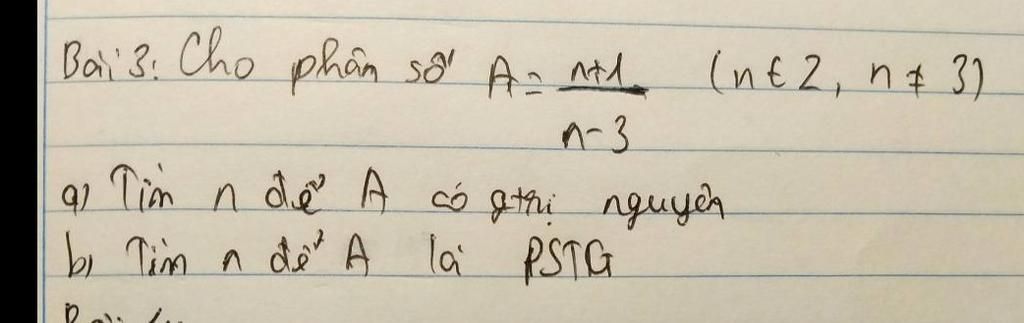 Bài 3: Cho phân số A = n+1 / n-3 (n ∈ Z, n ≠ 3)
a) Tìm n để A có gtrị nguyên
b) Tìm n để A là PSTG